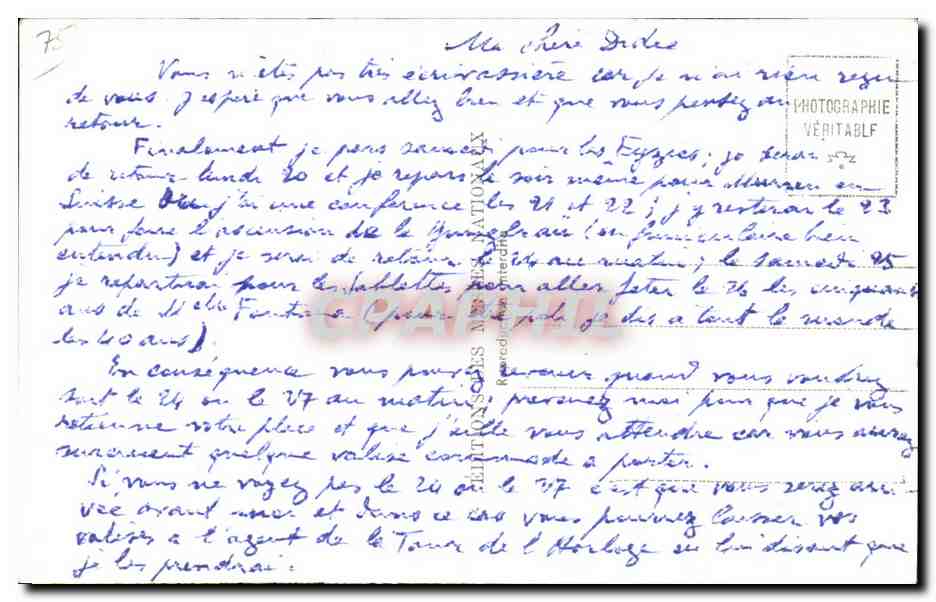 75
Ma chère Dedee
Vous n'êtes pas très écrivassière car je n'ai rien reçu
de vous. J'espère que vous allez bien et que vous pensez au
retour.
PHOTOGRAPHIE
VÉRITABLE
Finalement je pars samedi pour les Eyzies; je serai
de retour lundi 20 et je repars le soir même pour Murren en
Suisse j'ai une conférence les 21 et 22; j'y resterai le 23
pour faire l'ascension de la Jungfrau (en funiculaire bien
entendu) et je serai de retour le 24 au matin; le samedi 25
je repartirai pour les tablettes pour aller fêter le 26 les cinquante
ans de Melle Fontana (pour être poli je dis à tout le monde
les 40 ans).
En conséquence vous pouvez revenir quand vous voudrez
soit le 24 ou le 27 au matin; prévenez moi pour que je vous
retienne votre place et que j'aille vous attendre car vous aurez
surement quelque valise commode à porter.
Si vous ne voyez pas le 24 ou le 27 c'est que vous serez arri-
vée avant moi et dans ce cas vous pourrez laisser vos
valises à l'agent de la Tour de l'Horloge en lui disant que
je les prendrai.
EDITIONS DES MUSEES NATIONAUX
Reproduction interdite
CPAPHIL